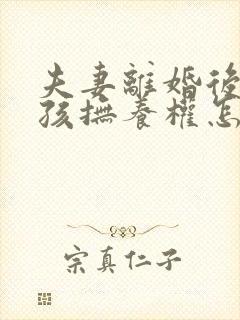 夫妻離婚後
孩撫養權怎
宗真仁子